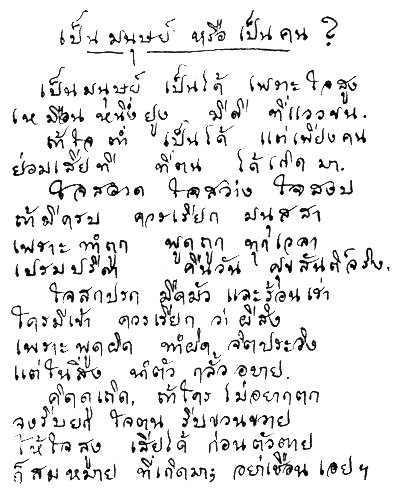 เป็นมนุษย์ หรือ เป็นคน ?
เป็นมนุษย์ เป็นได้ เพราะใจสูง
เหมือนหนึ่งยูง มีดี ที่แววขน.
ถ้าใจต่ำ เป็นได้ แต่เพียงคน
ย่อมเสียที ที่ตน ได้เกิดมา.
ใจสอาด ใจสว่าง ใจสงบ
ถ้ามีครบ ควรเรียก มนุสสา
เพราะทำถูก พูดถูก ทุกเวลา
เปรมปรีดา คืนวัน สุขสันติ์จริง.
ใจสกปรก มืดมัว และร้อนเร่า
ใครมีเข้า ควรเรียก ว่าผีสิง
เพราะพูดผิด ทำผิด จิตประวิง
แต่ในสิ่ง ทำตัว กลั้วอบาย.
คิดดูเถิด, ถ้าใคร ไม่อยากตก
จงรีบยก ใจตน รีบขวนขวาย
ให้ใจสูง เสียได้ ก่อนตัวตาย
ก็สมหมาย ที่เกิดมา; อย่าเชือนเอยฯ